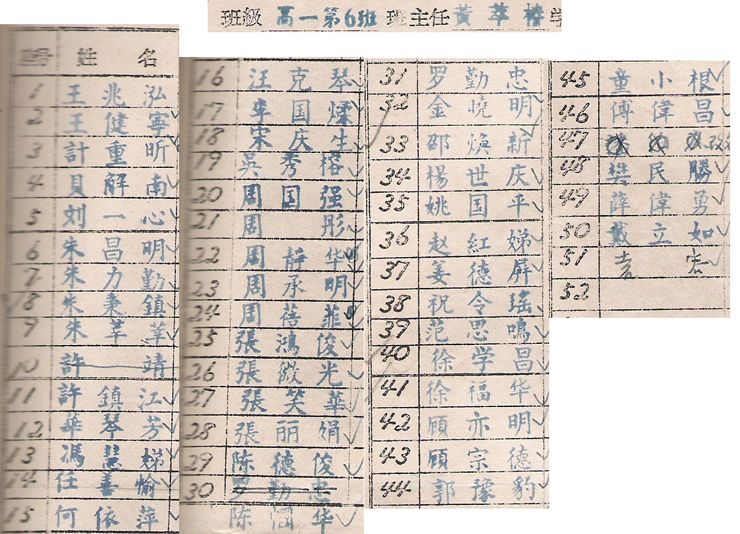 班級 高一第6班 班主任 黄萃椿 学
姓名
1 王兆泓
2 王健寧
3 計重昕
4 貝解南
5 刘一心
6 朱昌明
7 朱力勤
8 朱秉鎮
9 朱莘莘
10 許靖
11 許鎮江
12 華琴芳
13 馮慧娣
14 任善愉
15 何依萍
16 汪克琴
17 李国燦
18 宋庆生
19 吳秀榕
20 周国强
21 周彤
22 周静华
23 周承明
24 周蓓菲
25 張鴻俊
26 張微光
27 張笑華
28 張丽娟
29 陈德俊
30 罗勤忠
陈儒华
31 罗勤忠
32 金曉明
33 邵焕新
34 楊世庆
35 姚国平
36 赵紅娣
37 姜德屏
38 祝令瑶
39 范思鳴
40 徐学昌
41 徐福华
42 顧亦明
43 顧宗德
44 郭豫豹
45 童小根
46 傅偉昌
47
48 樊民勝
49 薛偉勇
50 戴立如
51 宏
52